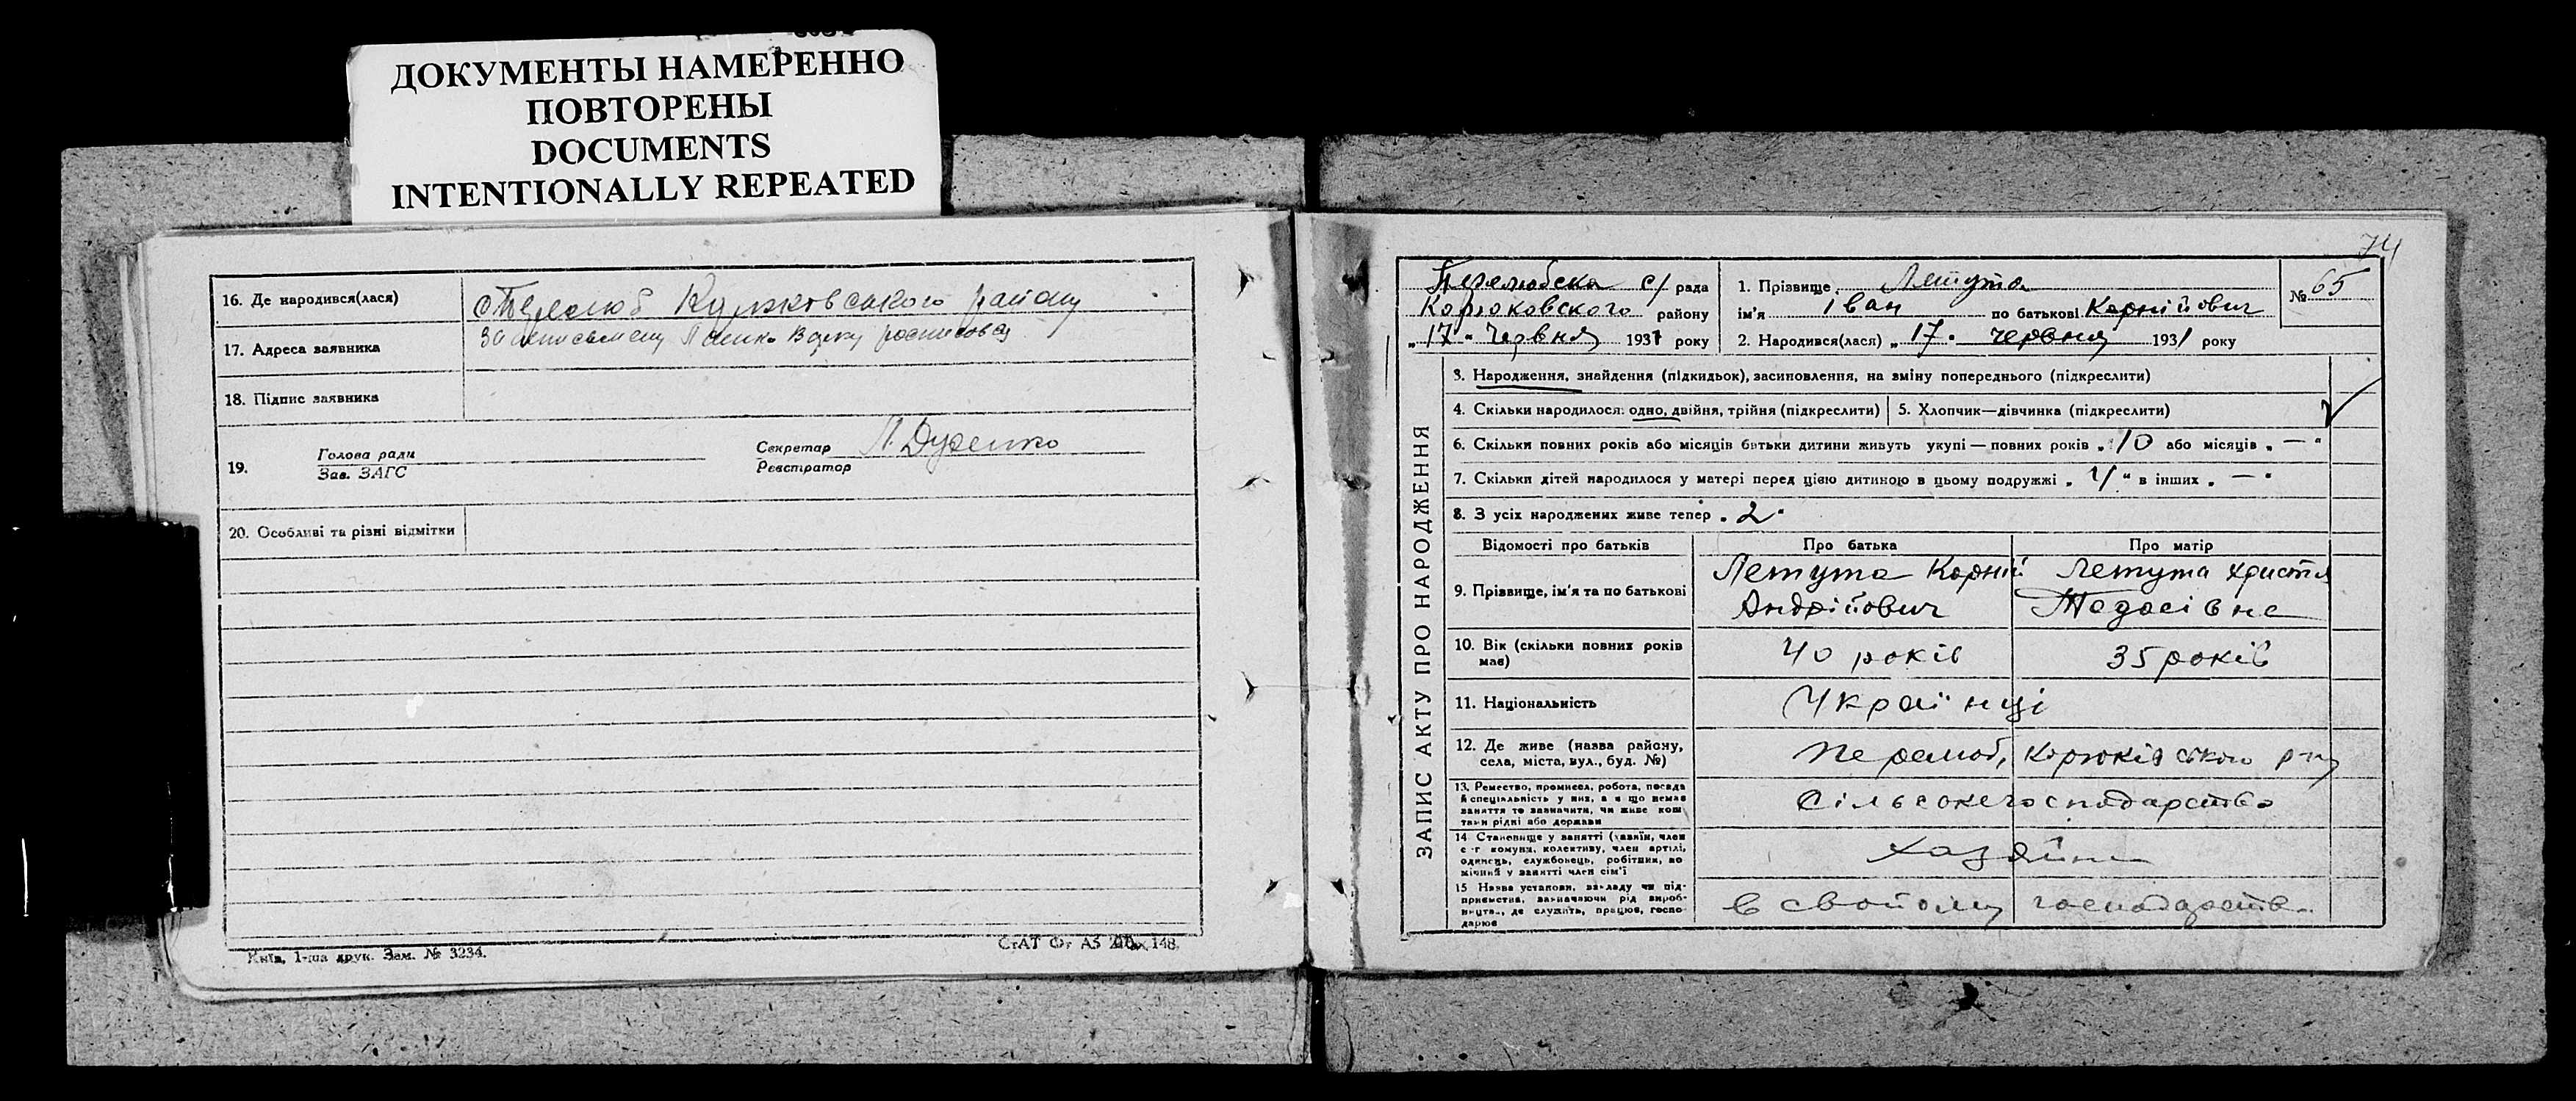 ДОКУМЕНТЫ НАМЕРЕННО
ПОВТОРЕНЫ
DOCUMENTS
INTENTIONALLY REPEATED
16. Де народився(лася)
району
17. Адреса заявника
18. Підпис заявника
19. Голова ради
Зав. ЗАГС
Секретар
Реєстратор
20. Особливі та різні відмітки
Київ, 1-ша друк. Зам. № 3234.
74
ЗАПИС АКТУ ПРО НАРОДЖЕННЯ
Перелюбска с/рада
Корюковского району
„17" Червня 1931 року
1. Прізвище Летута
ім'я Іван по батькові Корнійович
2. Народився(лася) „17" червня 1931 року
№ 65
3. Народження, знайдення (підкидьок), засиновлення, на зміну попереднього (підкреслити)
4. Скільки народилося: одно, двійня, трійня (підкреслити)
5. Хлопчик—дівчинка (підкреслити)
6. Скільки повних років або місяців батьки дитини живуть укупі — повних років „10" або місяців „—"
7. Скільки дітей народилося у матері перед цією дитиною в цьому подружжі „4" в інших „—"
8. З усіх народжених живе тепер „2"
Відомості про батьків
Про батька
Про матір
9. Прізвище, ім'я та по батькові
Летута Корній
Андрійович
Летута Христя
10. Вік (скільки повних років має)
40 років
35 років
11. Національність
Українці
12. Де живе (назва району,
села, міста, вул., буд. №)
Перелюб, Корюківського р-ну
13. Ремество, промисел, робота, посада
й спеціальність у них, а як що немає
заняття то зазначити, чи живе кош
тами рідні або держави
Сільсокегосподарство
14 Становище у занятті (хазяїн, член
с-г комуни, колективу, член артілі,
одинець, службовець, робітник, по
мічний у занятті член сім'ї
Хазяїни
15 Назва установи, закладу чи під-
приємства, зазначаючи рід вироб-
ництва, де служить, працює, госпо-
дарює
В свойому господарстві